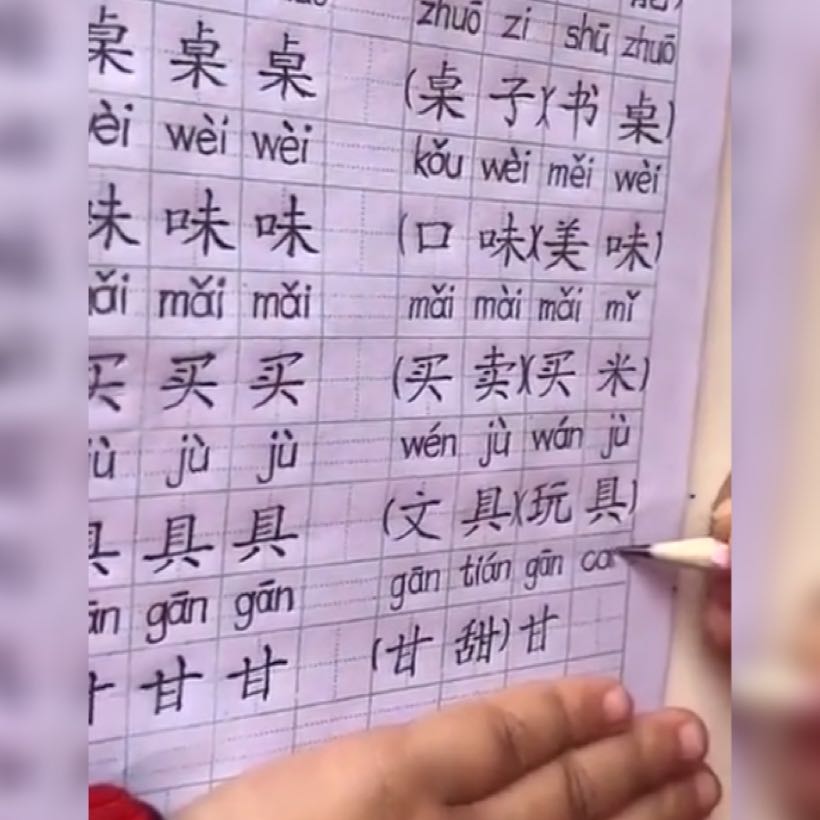 zhuō zi shū zhuō
桌 桌 桌 (桌 子)(书 桌)
wèi wèi kǒu wèi měi wèi
味 味 味 (口 味)(美 味)
mǎi mǎi mǎi mài mǎi mǐ
买 买 买 (买 卖)(买 米)
jù jù wén jù wán jù
具 具 具 (文 具)(玩 具)
gān gān gān tián gān
甘 甘 (甘 甜) 甘